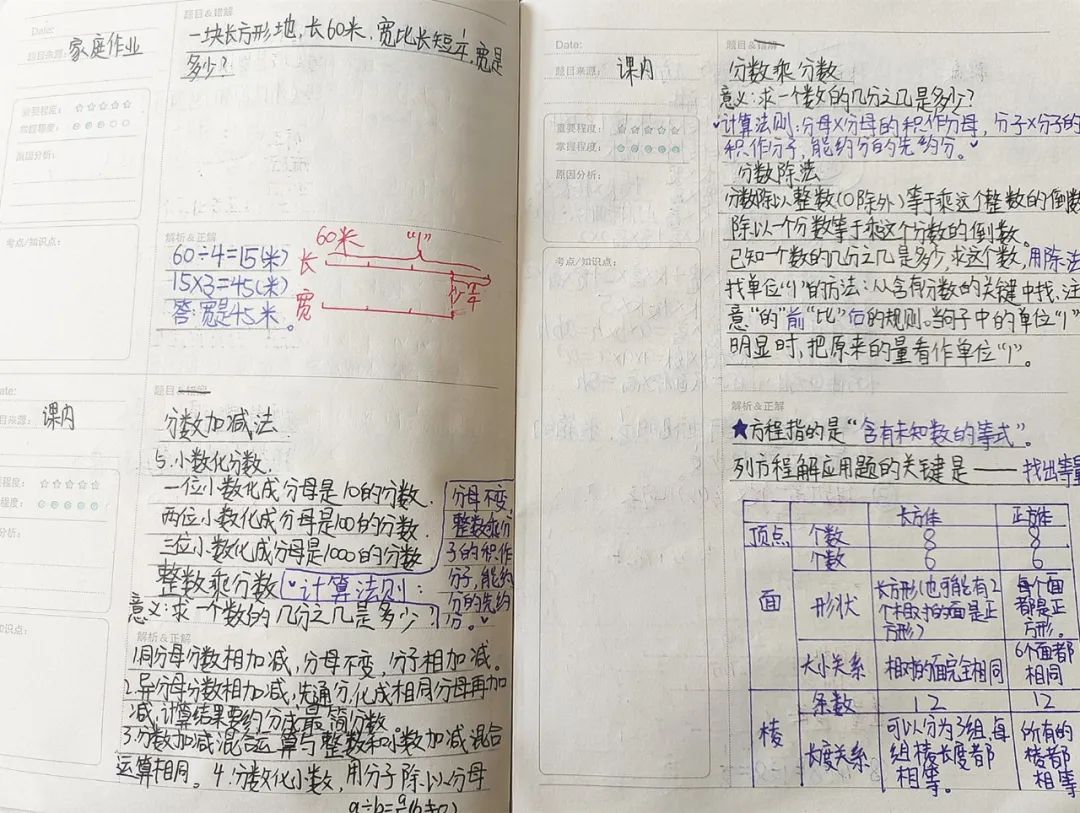 Date:
题目来源：
家庭作业
重要程度：
掌握程度：
原因分析：
考点/知识点：
题目&错解
一块长方形地，长60米，宽比长短1/4，宽是
多少？
解析&正解
60÷4=15(米)
15×3=45(米)
答：宽是45米。
60米
"1"
长
宽
1/4
Date:
题目来源：
课内
重要程度：
掌握程度：
原因分析：
知识点：
题目&错解
分数加减法
5.小数化分数.
一位小数化成分母是10的分数.
两位小数化成分母是100的分数.
三位小数化成分母是1000的分数
整数乘分数
计算法则：
分母不变，
整数乘分
子的积作
分子，能约
分的先约
分。
意义：求一个数的几分之几是多少？
解析&正解
1.同分母分数相加减，分母不变，分子相加减。
2.异分母分数相加减，先通分，化成相同分母再加
减，计算结果要约分成最简分数
3.分数加减混合运算与整数和小数加减混合
运算相同。4.分数化小数，用分子除以分母
Date:
题目来源：
课内
重要程度：
掌握程度：
原因分析：
考点/知识点：
题目&错解
分数乘分数
意义：求一个数的几分之几是多少？
计算法则：分母×分母的积作分母，分子×分子的
积作分子，能约分的先约分。
分数除法
分数除以整数（0除外）等于乘这个整数的倒数
除以一个分数等于乘这个分数的倒数。
已知一个数的几分之几是多少，求这个数，用除法
找单位"1"的方法：从含有分数的关键中找，注
意"的"前"比"后的规则。当句子中的单位"1"
明显时，把原来的量看作单位"1"。
解析&正解
★方程指的是"含有未知数的等式"。
列方程解应用题的关键是——找出等量
长方体 正方体
顶点 个数 8 8
面 个数 6 6
形状 长方形（也可能有2个相对的面是正方形） 每个面都是正方形。
大小关系 相对的面完全相同 6个面都相同
棱 条数 12 12
长度关系 可以分为3组，每组棱长度都相等。 所有的棱都相等